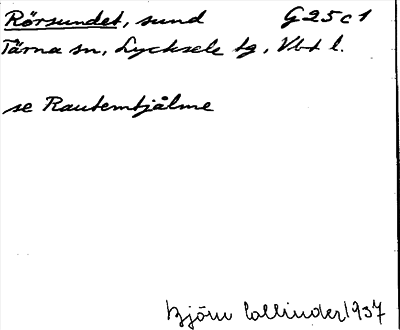 Rörsundet, sund G 25 c 1
Tärna sn, Lycksele tg, Vbt l.
se Rautemtjålme
Björn Collinder 1937